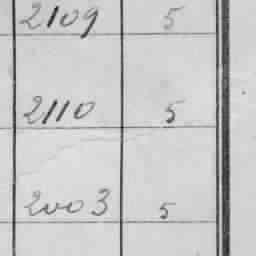 2109 5
2110 5
2003 5